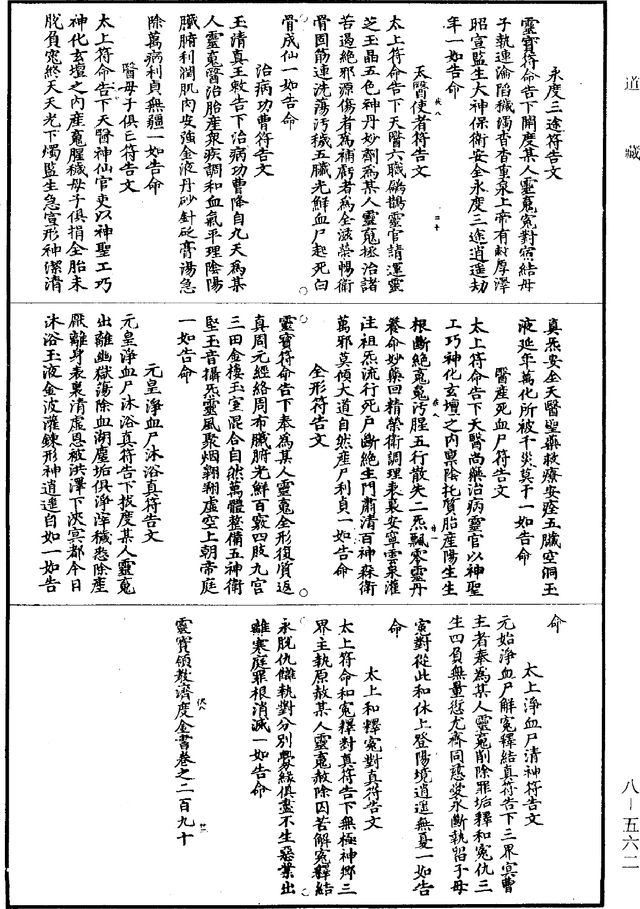 道藏
永度三途符告文
靈寶符命告下開度某人靈䰟寃對宿結毋
子執連淪陷穢濁杳杳重泉上帝有敕厚澤
昭宣監生大神保衛安全永度三途逍遙劫
年一如告命
天醫使者符告文
太上符命告下天醫六職鶣鵲靈官請運靈
芝玉晶五色神丹妙劑為某人靈䰟拯治諸
苦過絶邪源傷者為補虧者為全滋榮暢衛
骨固筋連洗蕩汚穢五臟光鮮血尸起死白
骨成仙一如告命
治病功曹符告文
玉清真王敕告下治病功曹降自九天為某
人靈䰟醫治胎產衆疾調和血氣平理陰陽
臟腑利潤肌肉安強金液丹砂針砭膏湯急
除萬病利貞無疆一如告命
醫母子俱亡符告文
太上符命告下天醫神仙官吏以神聖工巧
神化玄壇之内產䰟腥穢母子俱捐全胎未
脫負寃終天天光下燭監生急宣形神潔清
真炁安全天醫聖藥救療安痊五臟空洞玉
液延年萬化所被千災莫干一如告命
醫產死血尸符告文
太上符命告下天醫尚藥治病靈官以神聖
工巧神化玄壇之内稟陰托質胎產陽生生
根斷絶䰟䰟汚腥五行散失二炁飄零靈丹
養命妙藥回精榮衛調理表裏安寧雲泉灌
注祖炁流行死尸斷絶生門肅清百神森衛
萬邪莫傾大道自然產尸利貞一如告命
全形符告文
靈寶符命告下奉為某人靈䰟全形復質返
真周元經絡周布臟腑光鮮百竅四肢九宮
三田金樓玉室混合自然萬體整備五神衛
堅玉音攝炁靈風聚烟翺翺虛空上朝帝庭
一如告命
元皇淨血尸沐浴真符告文
元皇淨血尸沐浴真符告下拔度某人靈䰟
出離幽獄蕩除血湖塵垢俱淨滓穢悉除產
厭離身表裏清虛恩被洪澤下浹冥都今日
沐浴玉液金波灌錬形神逍遙自如一如告
命
太上淨血尸清神符告文
元始淨血尸解寃釋結真符告下三界冥曹
主者奉為某人靈䰟削除罪垢釋和寃仇三
生四負無量愆尤齊同慈愛永斷執留子母
寃對從此和休上登陽境逍遥無憂一如告
命
太上和釋寃對真符告文
太上符命和寃釋對真符告下無極神鄉三
界主執原赦某人靈䰟赦除囚苦解寃釋結
永脫仇讎執對分別釁縁俱盡不生惡業出
離寒庭罪根消滅一如告命
靈寶領教濟度金書卷之二百九十
八－五六二